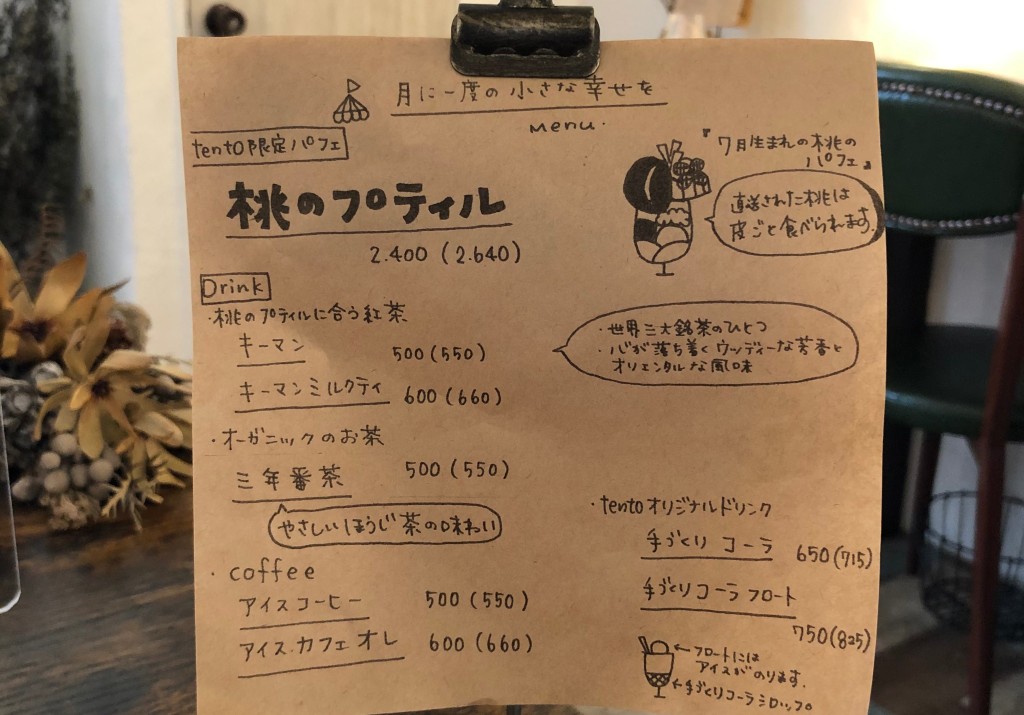 月に一度の小さな幸せを
menu.
tento限定パフェ
桃のプティル
2.400 (2.640)
『7月生まれの桃の
パフェ』
直送された桃は
皮ごと食べられます。
Drink
・桃のプティルに合う紅茶
キーマン 500 (550)
・世界三大銘茶のひとつ
・心が落ち着くウッディーな芳香と
オリエンタルな風味
キーマンミルクティ 600 (660)
・オーガニックのお茶
三年番茶 500 (550)
やさしいほうじ茶の味わい
・coffee
アイスコーヒー 500 (550)
アイス・カフェオレ 600 (660)
・tentoオリジナルドリンク
手づくり コーラ 650 (715)
手づくりコーラフロート
750 (825)
←フロートには
アイスがのります。
←手づくりコーラシロップ